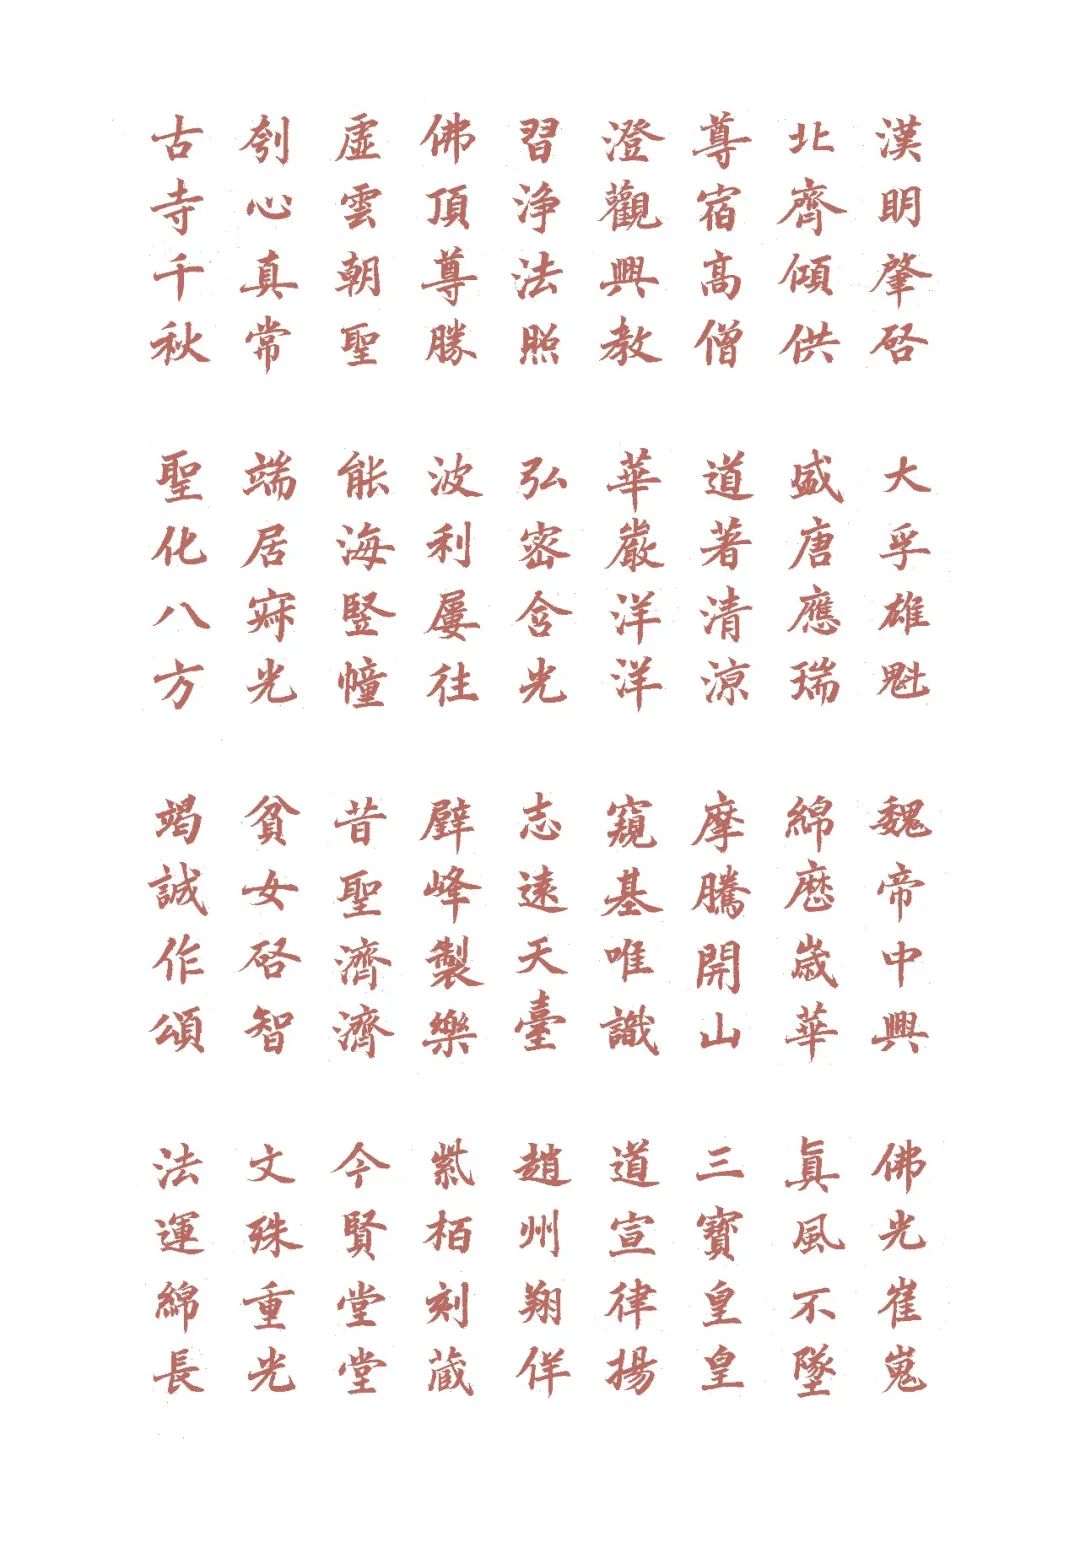 漢明肇启 大孚雄魁 魏帝中興 佛光崔嵬
北齊傾供 盛唐應瑞 綿厯歲華 眞風不墜
尊宿高僧 道著清涼 摩騰開山 三寶皇皇
澄觀興教 華嚴洋洋 窺基唯識 道宣律揚
習浄法照 弘密含光 志遠天臺 趙州翔佯
佛頂尊勝 波利屢往 璧峰製樂 紫栢刻蔵
虛雲朝聖 能海竪幢 昔聖濟濟 今賢堂堂
刳心真常 端居寂光 貧女启智 文殊重光
古寺千秋 聖化八方 竭誠作頌 法運綿長